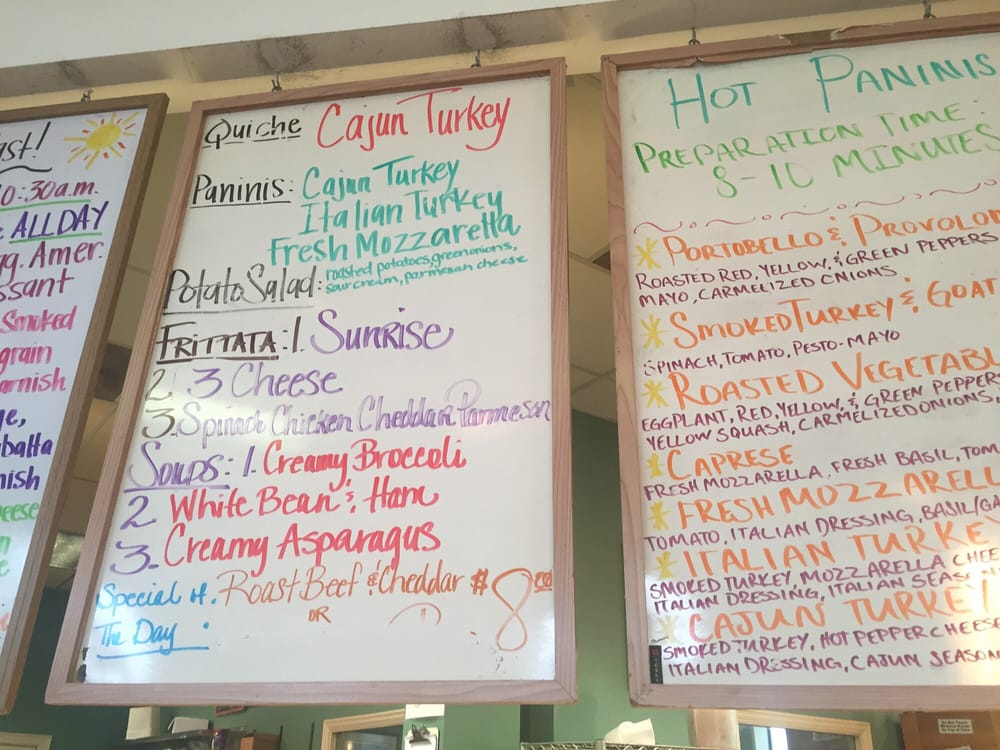 ast!
0:30a.m.
ALLDAY
gg. Amer.
ssant
Smoked
grain
arnish
ye,
abatta
nish
heese
Quiche Cajun Turkey
Paninis: Cajun Turkey
Italian Turkey
Fresh Mozzarella
Potato Salad: roasted potatoes, green onions,
sour cream, parmesan cheese
Frittata: 1. Sunrise
2 3 Cheese
3. Spinach Chicken Cheddar Parmesan
Soups: 1. Creamy Broccoli
2. White Bean & Ham
3. Creamy Asparagus
Special of. Roast Beef & Cheddar $8.00
The Day OR
HOT PANINIS
PREPARATION TIME:
8-10 MINUTES
PORTOBELLO & PROVOLON
ROASTED RED, YELLOW, & GREEN PEPPERS
MAYO, CARMELIZED ONIONS
SMOKED TURKEY & GOAT
SPINACH, TOMATO, PESTO-MAYO
ROASTED VEGETABL
EGGPLANT, RED, YELLOW, & GREEN PEPPERS
YELLOW SQUASH, CARMELIZED ONIONS,
CAPRESE
FRESH MOZZARELLA, FRESH BASIL, TOM
FRESH MOZZARELL
TOMATO, ITALIAN DRESSING, BASIL/GA
ITALIAN TURKEY
SMOKED TURKEY, MOZZARELLA CHEE
ITALIAN DRESSING, ITALIAN SEASON
CAJUN TURKEY
SMOKED TURKEY, HOT PEPPER CHEESE
ITALIAN DRESSING, CAJUN SEASON